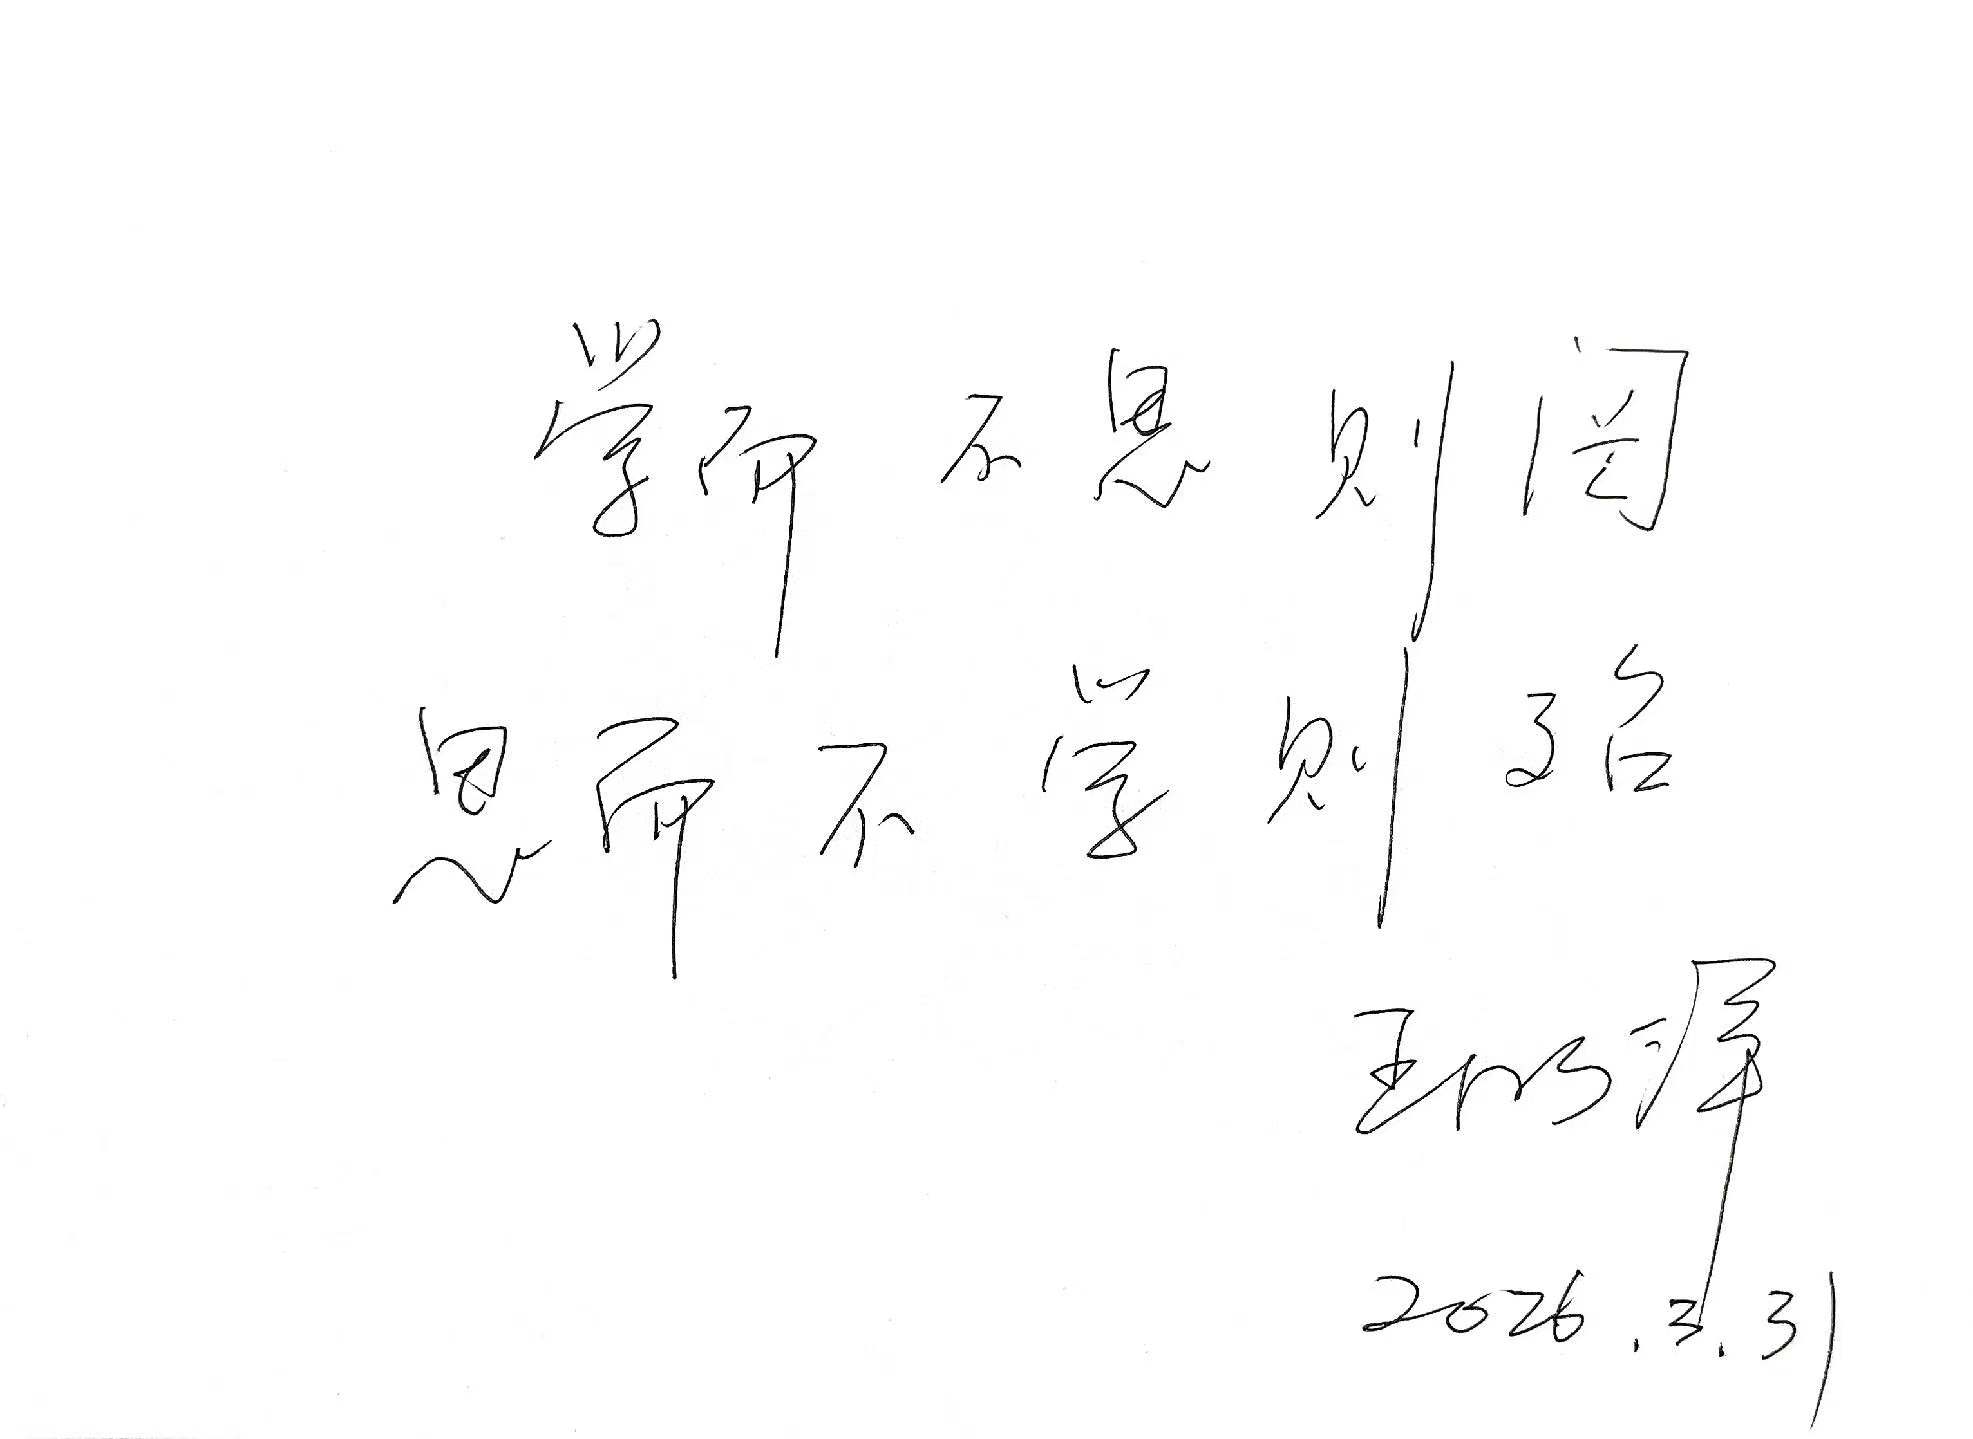 学而不思则罔
思而不学则殆
王
2026.3.31